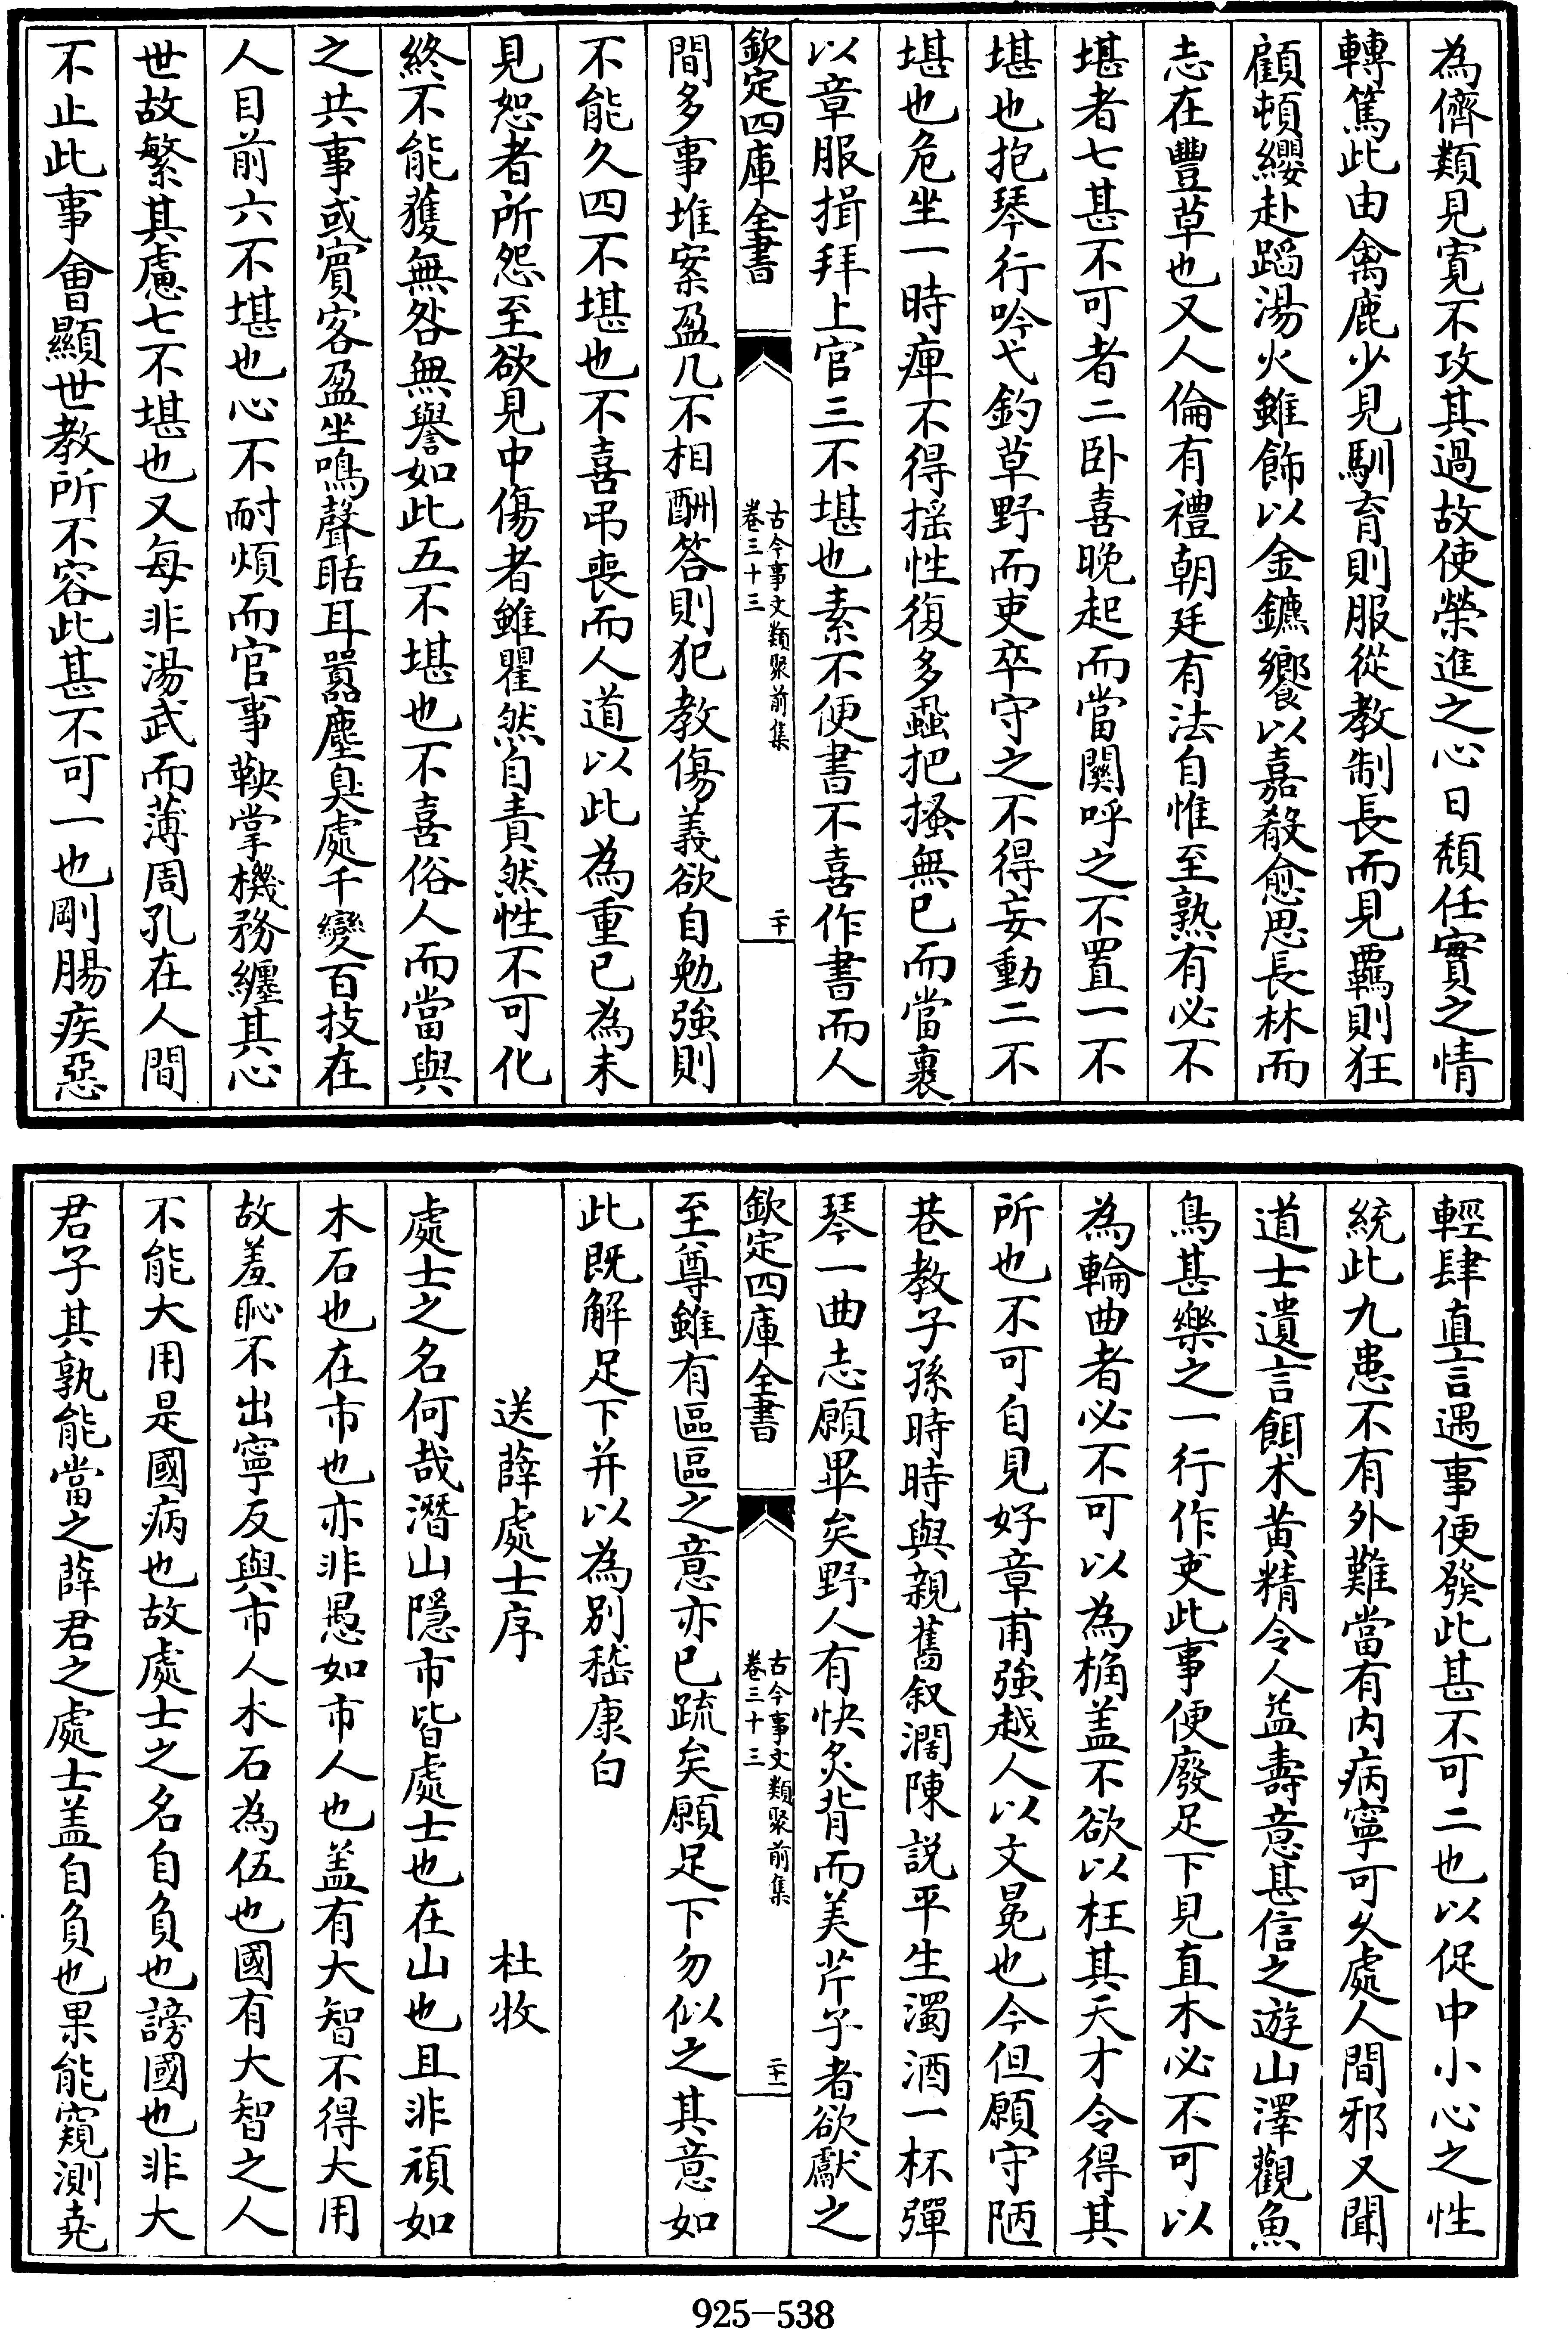 為儕類見寛不攻其過故使榮進之心日頽任實之情
轉篤此由禽鹿少見馴育則服從教制長而見羈則狂
顧頓纓赴蹈湯火雖飾以金鑣饗以嘉殽愈思長林而
志在豐草也又人倫有禮朝廷有法自惟至熟有必不
堪者七甚不可者二卧喜晚起而當關呼之不置一不
堪也抱琴行吟弋釣草野而吏卒守之不得妄動二不
堪也危坐一時痺不得揺性復多蝨把搔無已而當裹
以章服揖拜上官三不堪也素不便書不喜作書而人
欽定四庫全書
古今事文類聚前集
卷三十三
二十
間多事堆案盈几不相酬答則犯教傷義欲自勉強則
不能久四不堪也不喜弔喪而人道以此為重已為未
見恕者所怨至欲見中傷者雖瞿然自責然性不可化
終不能獲無咎無譽如此五不堪也不喜俗人而當與
之共事或賓客盈坐鳴聲聒耳囂塵臭處千變百技在
人目前六不堪也心不耐煩而官事鞅掌機務纏其心
世故繁其慮七不堪也又每非湯武而薄周孔在人間
不止此事會顯世教所不容此甚不可一也剛腸疾惡
輕肆直言遇事便發此甚不可二也以促中小心之性
統此九患不有外難當有内病寧可久處人間邪又聞
道士遺言餌术黄精令人益壽意甚信之遊山澤觀魚
鳥甚樂之一行作吏此事便廢足下見直木必不可以
為輪曲者必不可以為桷盖不欲以枉其天才令得其
所也不可自見好章甫強越人以文冕也今但願守陋
巷教子孫時時與親舊叙濶陳説平生濁酒一杯彈
琴一曲志願畢矣野人有快炙背而美芹子者欲獻之
欽定四庫全書
古今事文類聚前集
卷三十三
二十一
至尊雖有區區之意亦已疏矣願足下勿似之其意如
此既解足下并以為别嵇康白
送薛處士序 杜牧
處士之名何哉潛山隱市皆處士也在山也且非頑如
木石也在市也亦非愚如市人也盖有大智不得大用
故羞恥不出寧反與市人木石為伍也國有大智之人
不能大用是國病也故處士之名自負也謗國也非大
君子其孰能當之薛君之處士盖自負也果能窺測堯
925-538